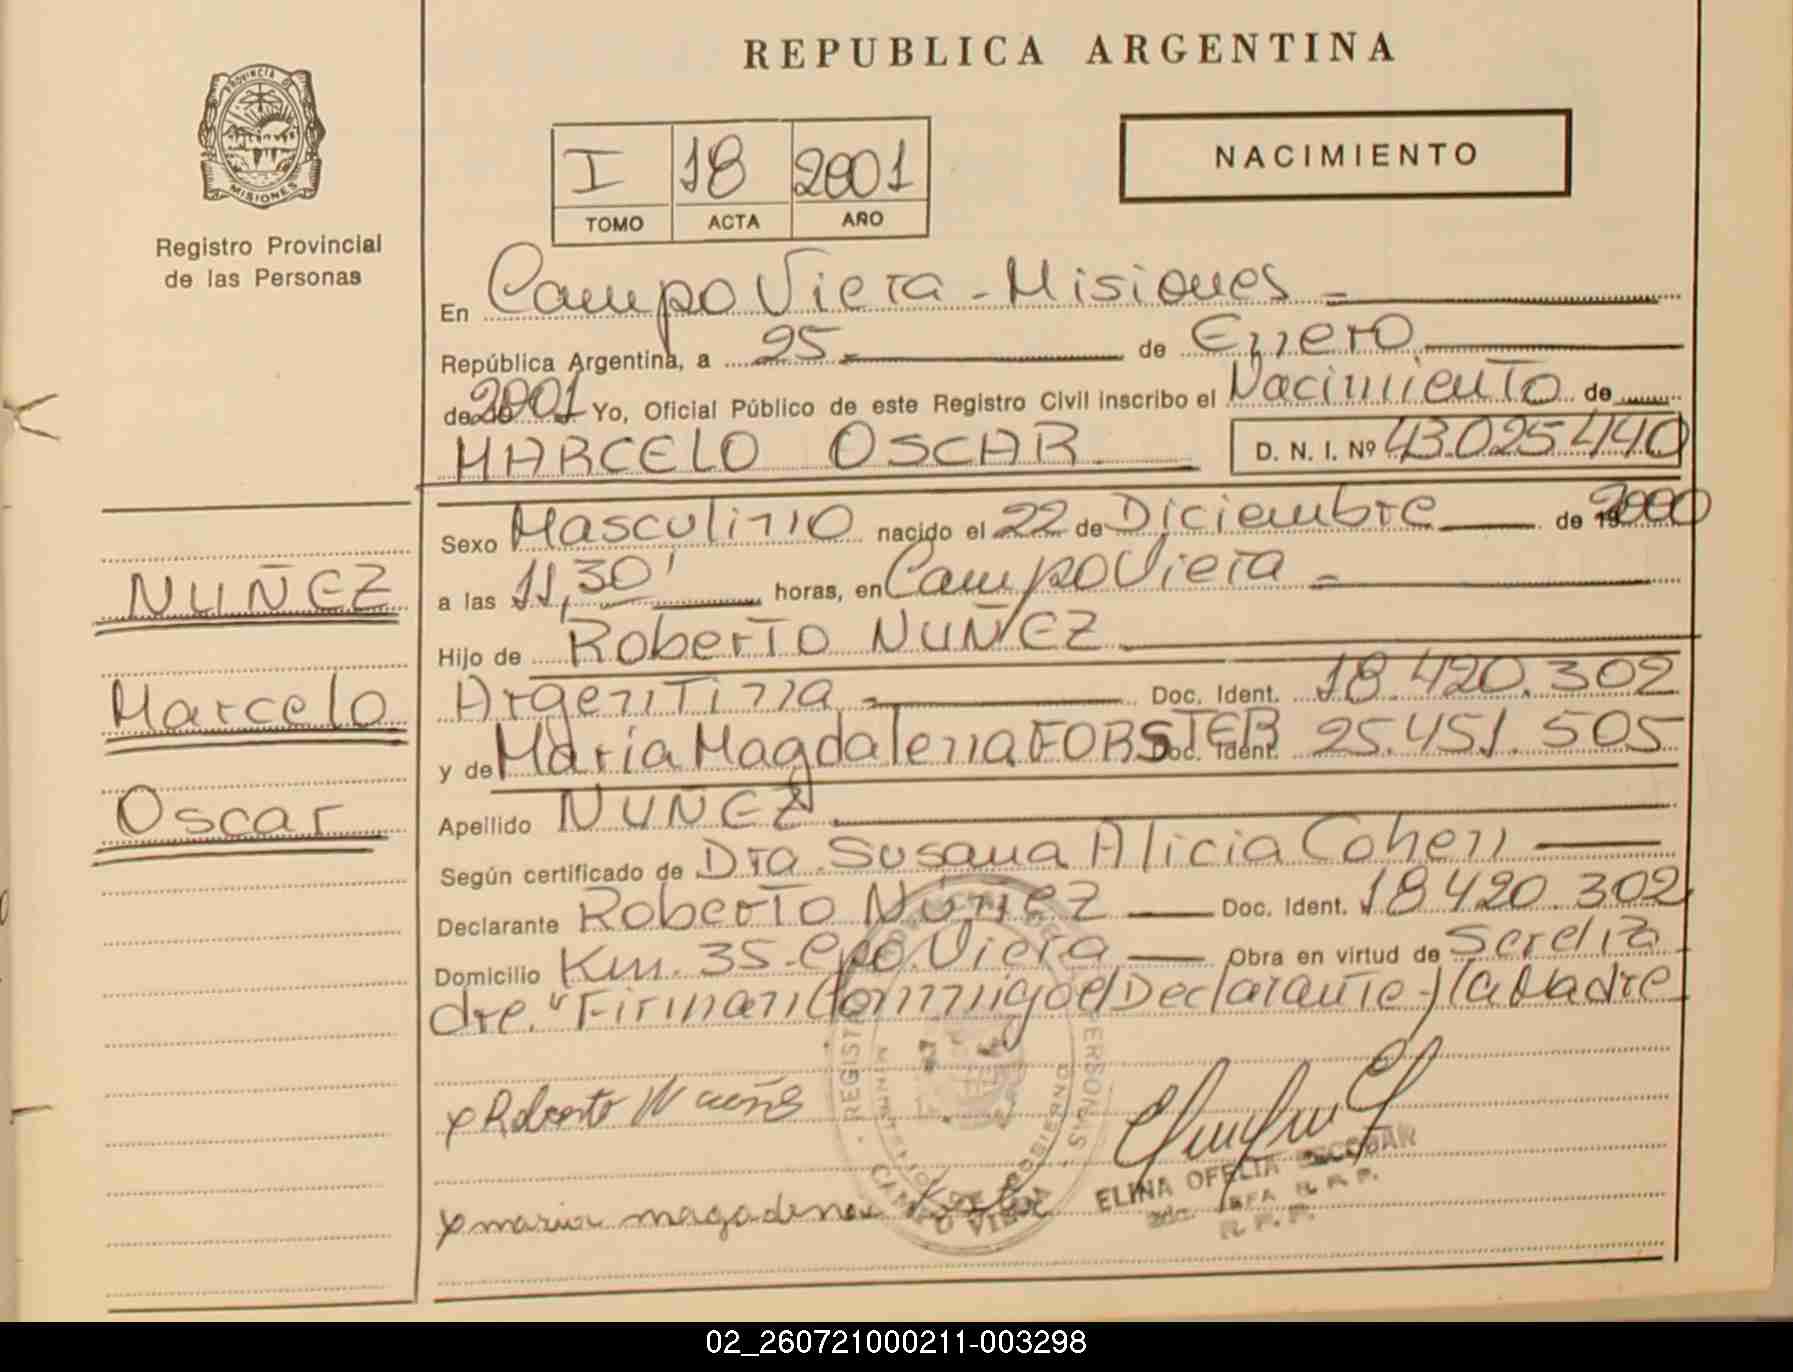 REPUBLICA ARGENTINA
PROVINCIA DE MISIONES
Registro Provincial
de las Personas
I 18 2001
TOMO ACTA AÑO
NACIMIENTO
En Campo Viera - Misiones
República Argentina, a 25 de Enero
de 2001 Yo, Oficial Público de este Registro Civil inscribo el Nacimiento de
MARCELO OSCAR D. N. I. Nº 43.025.440
Sexo Masculino nacido el 22 de Diciembre de 2000
a las 11,30' horas, en Campo Viera
Hijo de Roberto NUÑEZ
Argentina Doc. Ident. 18.420.302
y de Maria Magdalena FORSTER Doc. Ident. 25.451.505
Apellido NUÑEZ
Según certificado de Dra. Susana Alicia Cohen
Declarante Roberto Núñez Doc. Ident. 18420.302
Domicilio Km. 35 - Cpo. Viera Obra en virtud de Ser el Pa
dre. "Firman Conmigo el Declarante y la Madre
NUÑEZ
Marcelo
Oscar
x Roberto Nuñes
x maria magadena
ELINA OFELIA ESCOBAR
JEFA R. P. P.
R. P. P.
REGISTRO PROVINCIAL DE LAS PERSONAS
MINISTERIO DE GOBIERNO
CAMPO VIERA
02_260721000211-003298